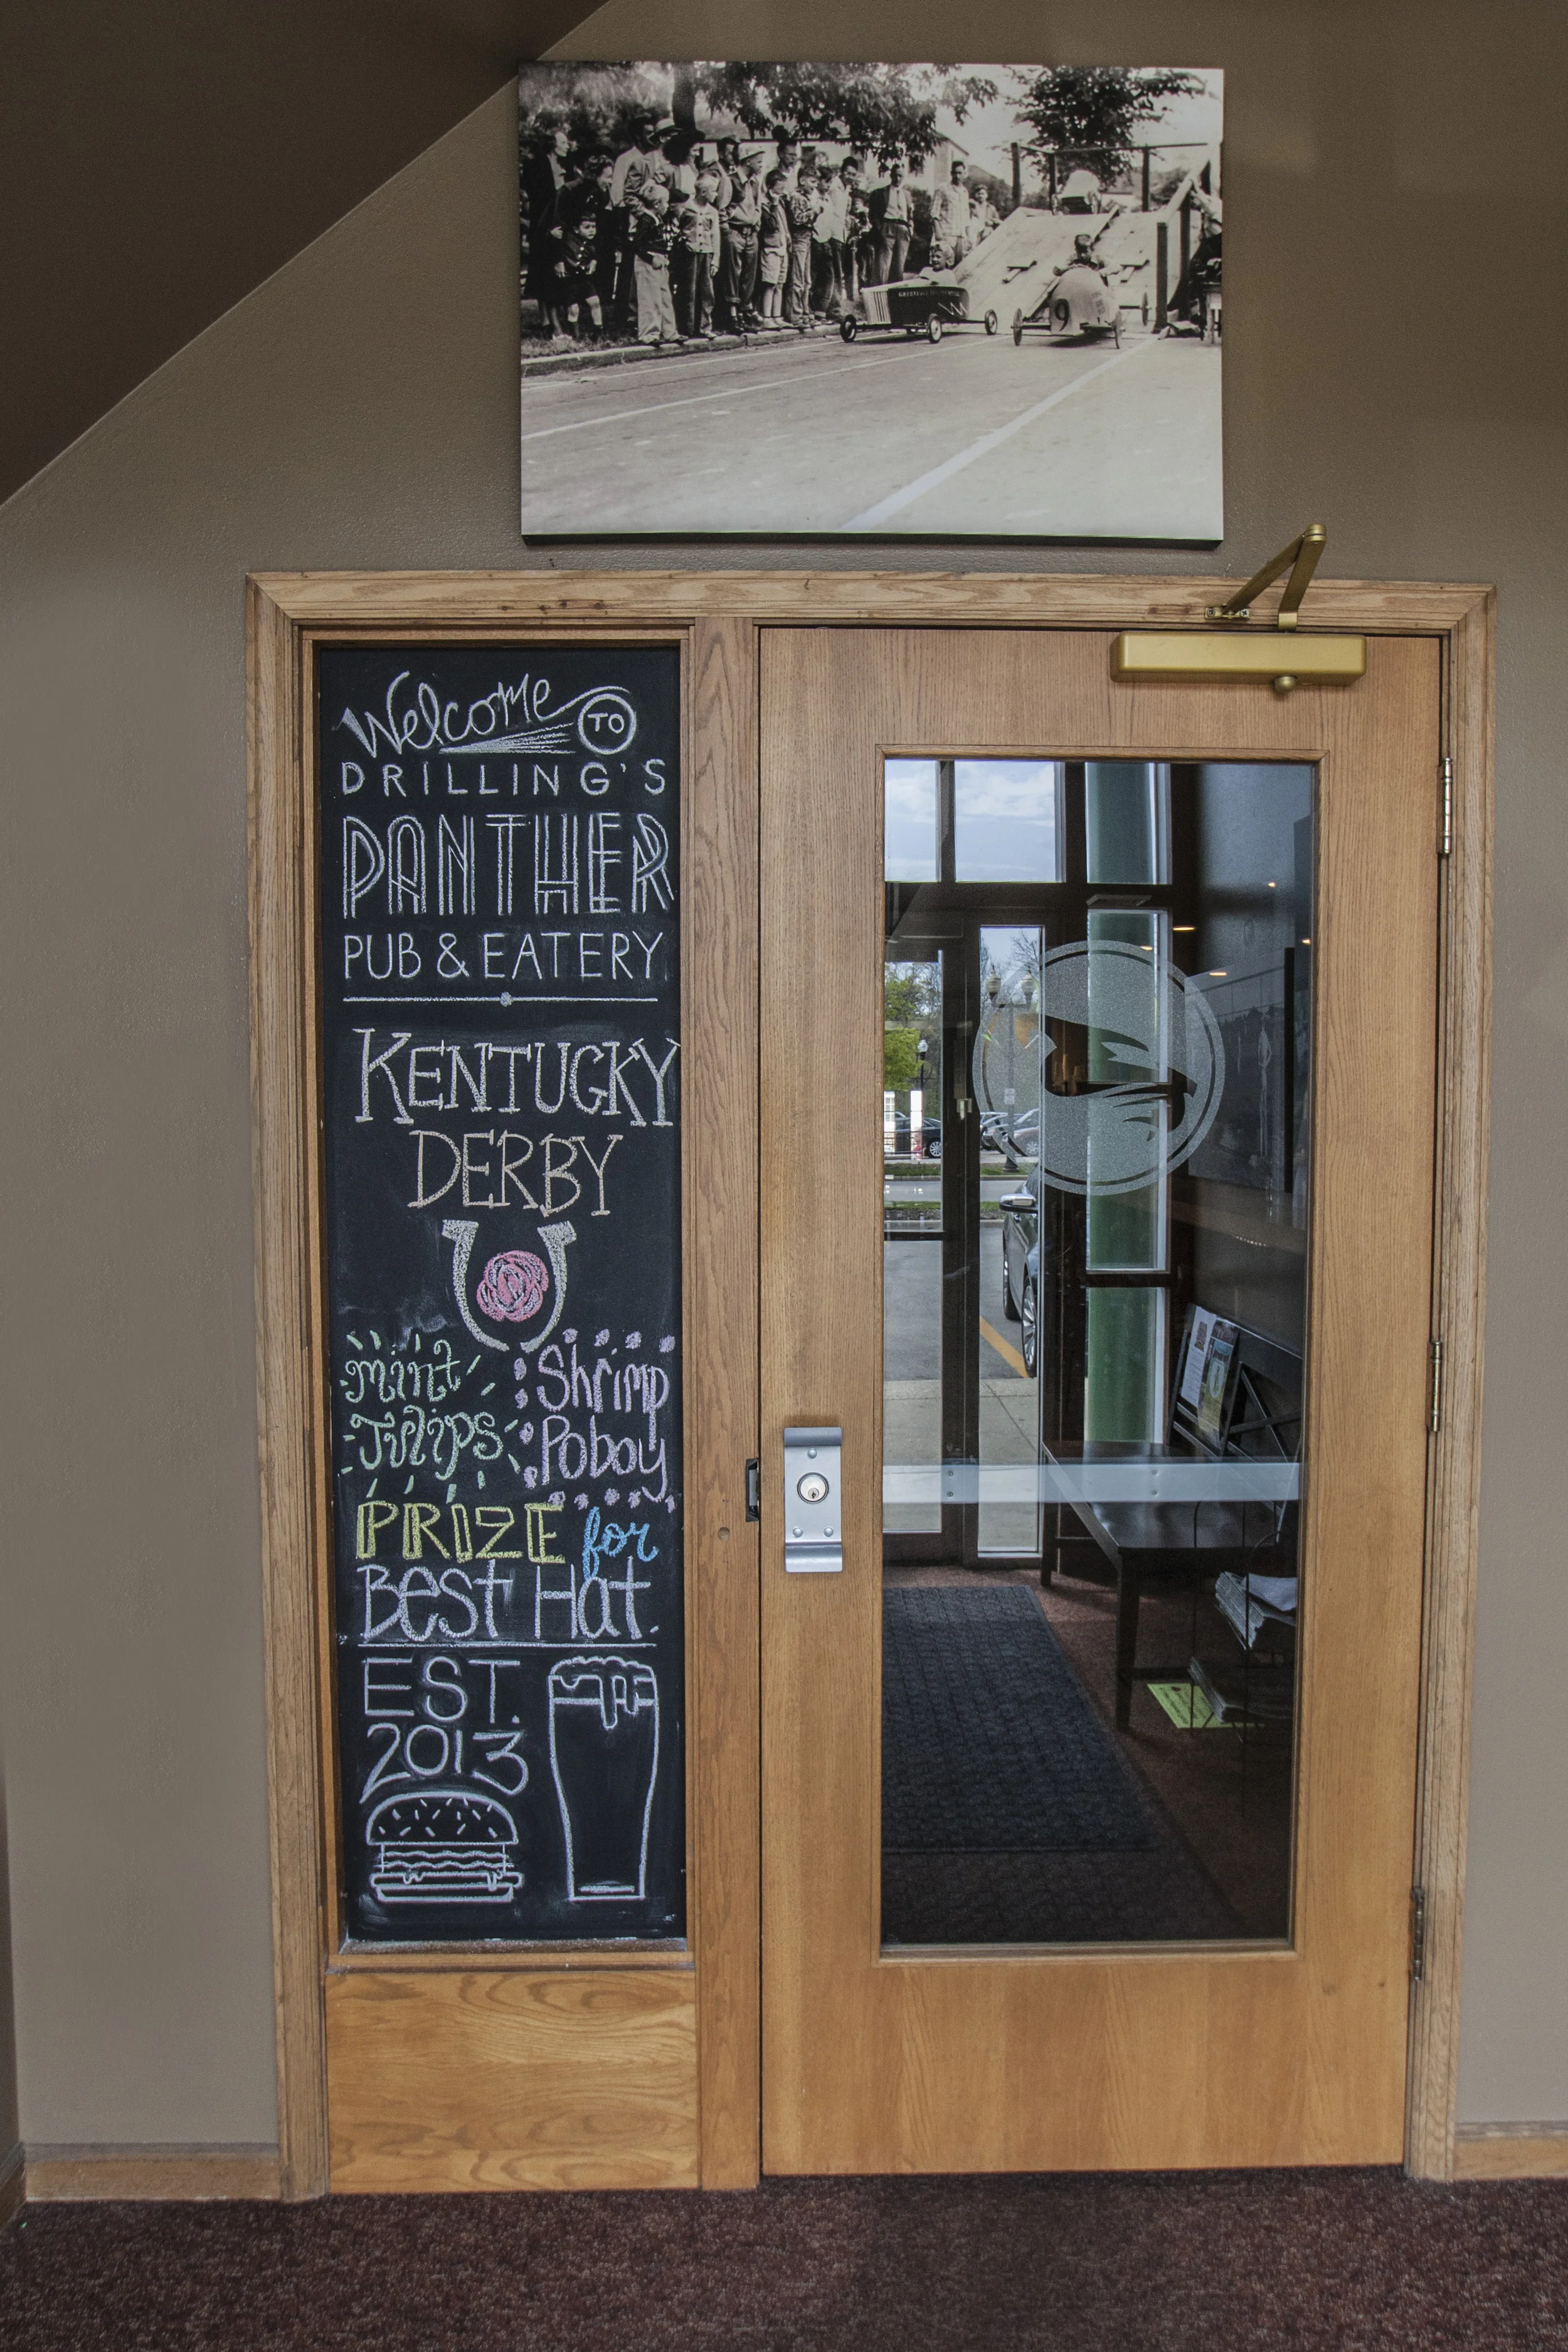 9
Welcome TO
DRILLING'S
PANTHER
PUB & EATERY
KENTUCKY
DERBY
Mint
Tulips
Shrimp
Poboy
PRIZE for
BEST Hat.
EST.
2013